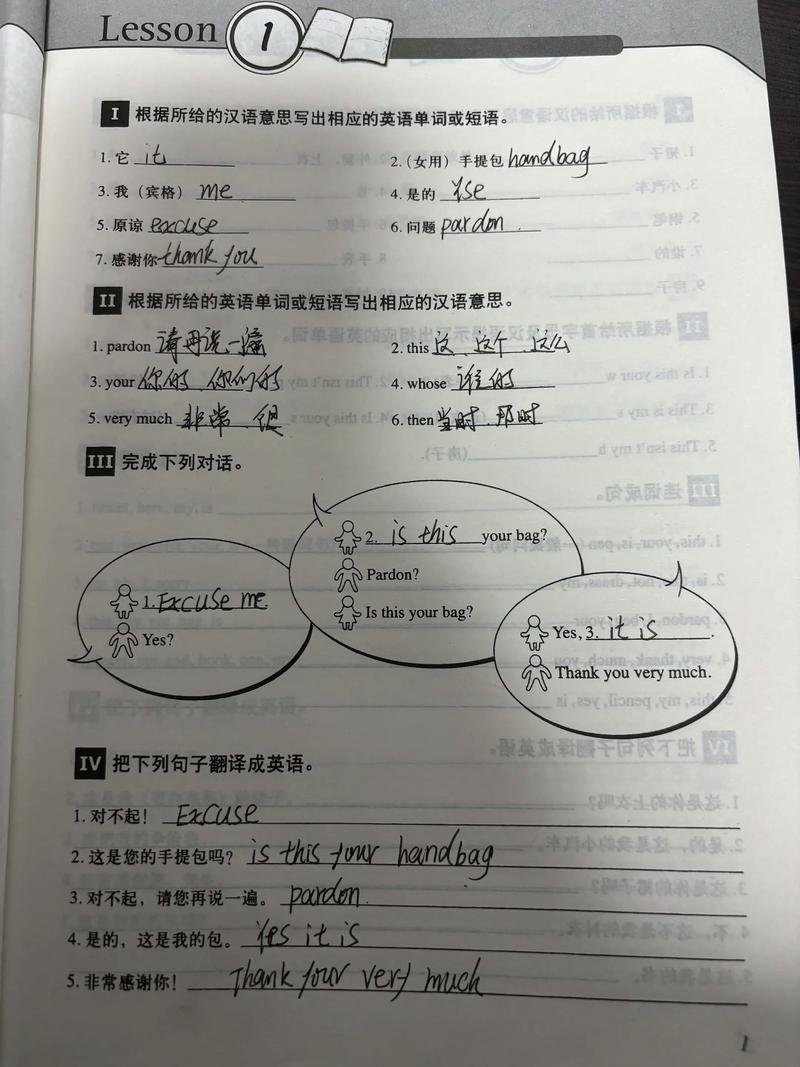 Lesson 1
I 根据所给的汉语意思写出相应的英语单词或短语。
1. 它 it 2. (女用) 手提包 handbag
3. 我（宾格） me 4. 是的 Yse
5. 原谅 excuse 6. 问题 pardon.
7. 感谢你 thank you
II 根据所给的英语单词或短语写出相应的汉语意思。
1. pardon 请再说一遍 2. this 这、这个、这么
3. your 你的、你们的 4. whose 谁的
5. very much 非常、很 6. then 当时、那时
III 完成下列对话。
1. Excuse me.
Yes?
2. is this your bag?
Pardon?
Is this your bag?
Yes, 3. it is.
Thank you very much.
IV 把下列句子翻译成英语。
1. 对不起！ Excuse
2. 这是您的手提包吗？ is this your handbag
3. 对不起，请您再说一遍。 pardon.
4. 是的，这是我的包。 Yes it is
5. 非常感谢你！ Thank your very much
1